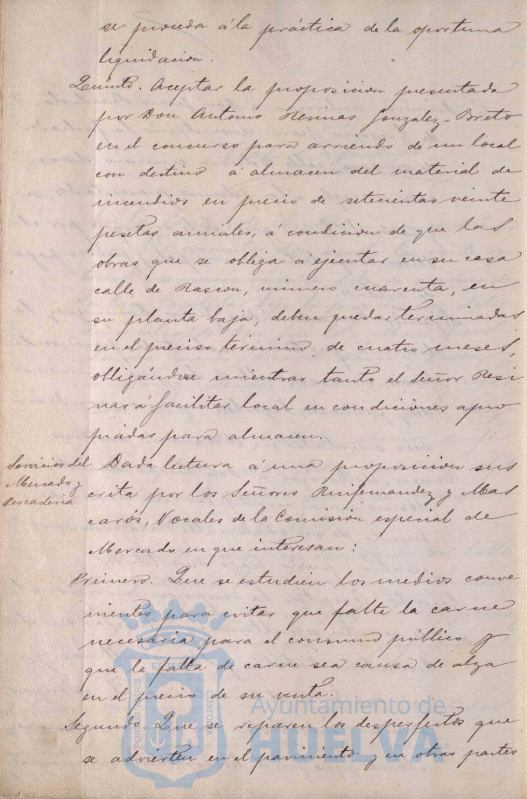 se proceda á la práctica de la oportuna
liquidación.
Quinto. Aceptar la proposición presentada
por Don Antonio Resinas Gonzalez-Prieto
en el concurso para arriendo de un local
con destino á almacen del material de
incendios en precio de setecientas veinte
pesetas anuales, á condición de que las
obras que se obliga á ejecutar en su casa
calle de Rascon, número cuarenta, en
su planta baja, deben quedar terminadas
en el preciso término de cuatro meses,
obligándose mientras tanto el Señor Resi
nas á facilitar local en condiciones apro
piadas para almacen.
Servicios del
Mercado y
Pescadería
Dada lectura á una proposición sus
crita por los Señores Ruifernandez y Mas
carós, Vocales de la Comisión especial de
Mercado en que interesan:
Primero. Que se estudien los medios conve
nientes para evitar que falte la carne
necesaria para el consumo público y
que la falta de carne sea causa de alza
en el precio de su venta.
Segundo. Que se reparen los desperfectos que
se advierten en el pavimento y en otras partes
Ayuntamiento de
HUELVA